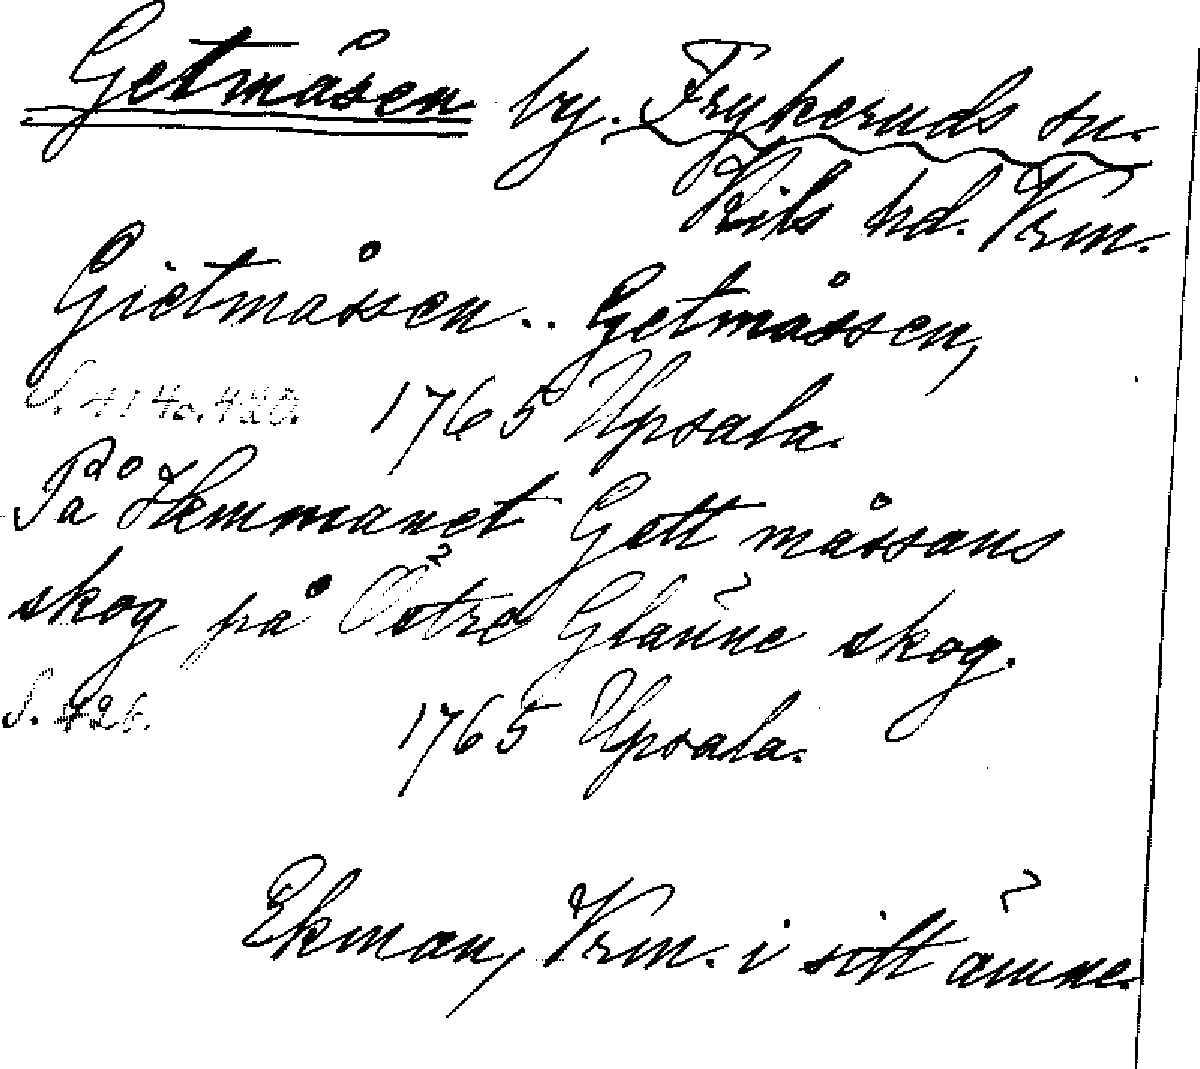 Getmåsen by. Frykeruds sn.
Kils hd. Vrm.
Gietmåssen.. Getmåssen,
S. 414 o. 420. 1765 Upsala.
På Hemmanet Gott måssans
skog på Östre Glänne skog.
S. 426. 1765 Upsala.
Ekman, Vrm. i sitt ämne.